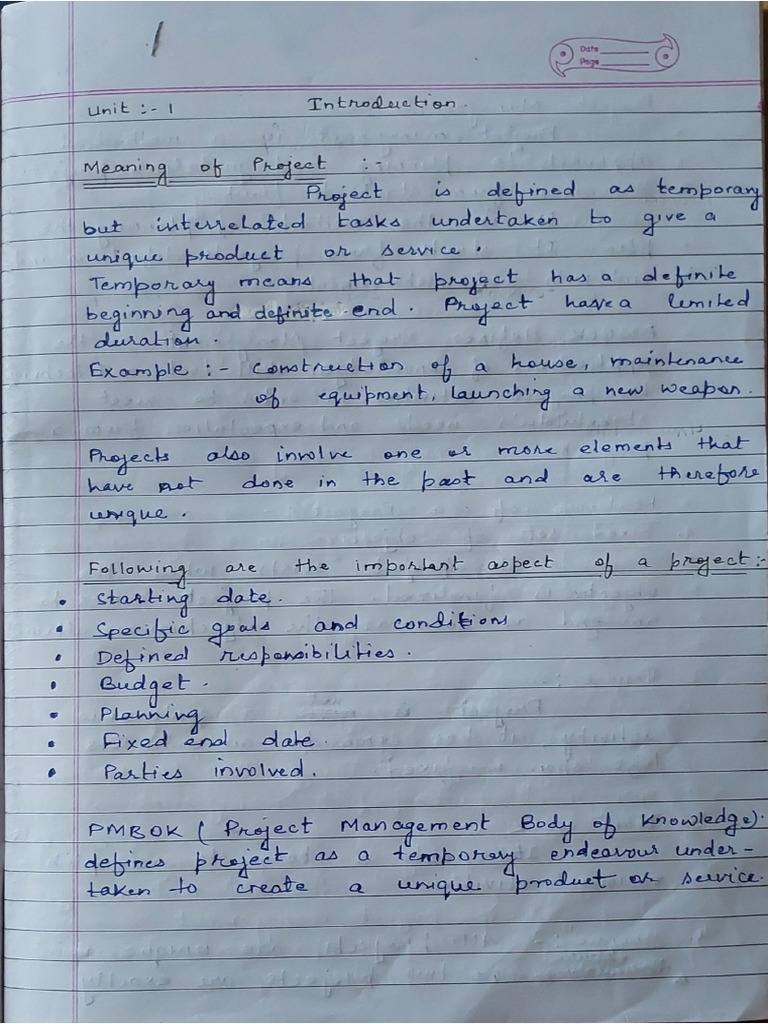 1
Date
Page
Unit :- 1 Introduction.
Meaning of Project :-
Project is defined as temporary
but interrelated tasks undertaken to give a
unique product or service.
Temporary means that project has a definite
beginning and definite end. Project have a limited
duration.
Example :- Construction of a house, maintenance
of equipment, launching a new weapon.
Projects also involve one or more elements that
have not done in the past and are therefore
unique.
Following are the important aspect of a project:-
• Starting date.
• Specific goals and conditions
• Defined responsibilities.
• Budget.
• Planning
• Fixed end date.
• Parties involved.
PMBOK (Project Management Body of Knowledge).
defines project as a temporary endeavour under-
taken to create a unique product or service.